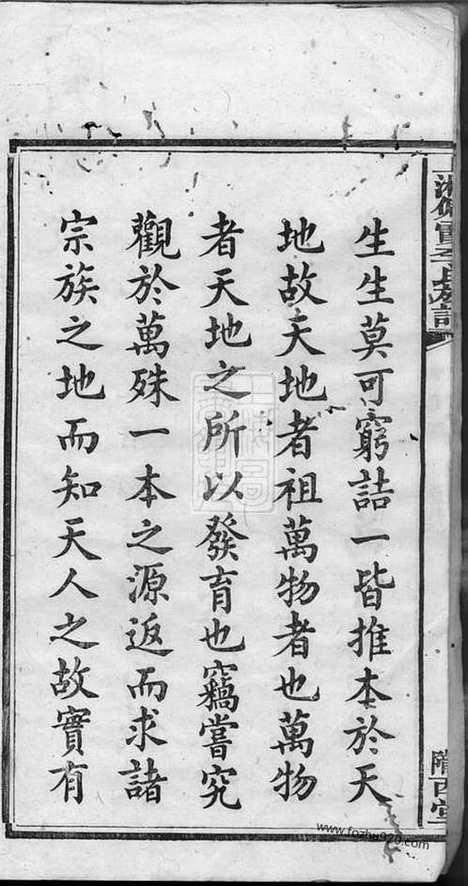 生生莫可窮詰一皆推本於天
地故天地者祖萬物者也萬物
者天地之所以發育也竊嘗究
觀於萬殊一本之源返而求諸
宗族之地而知天人之故實有
www.fozhu920.com